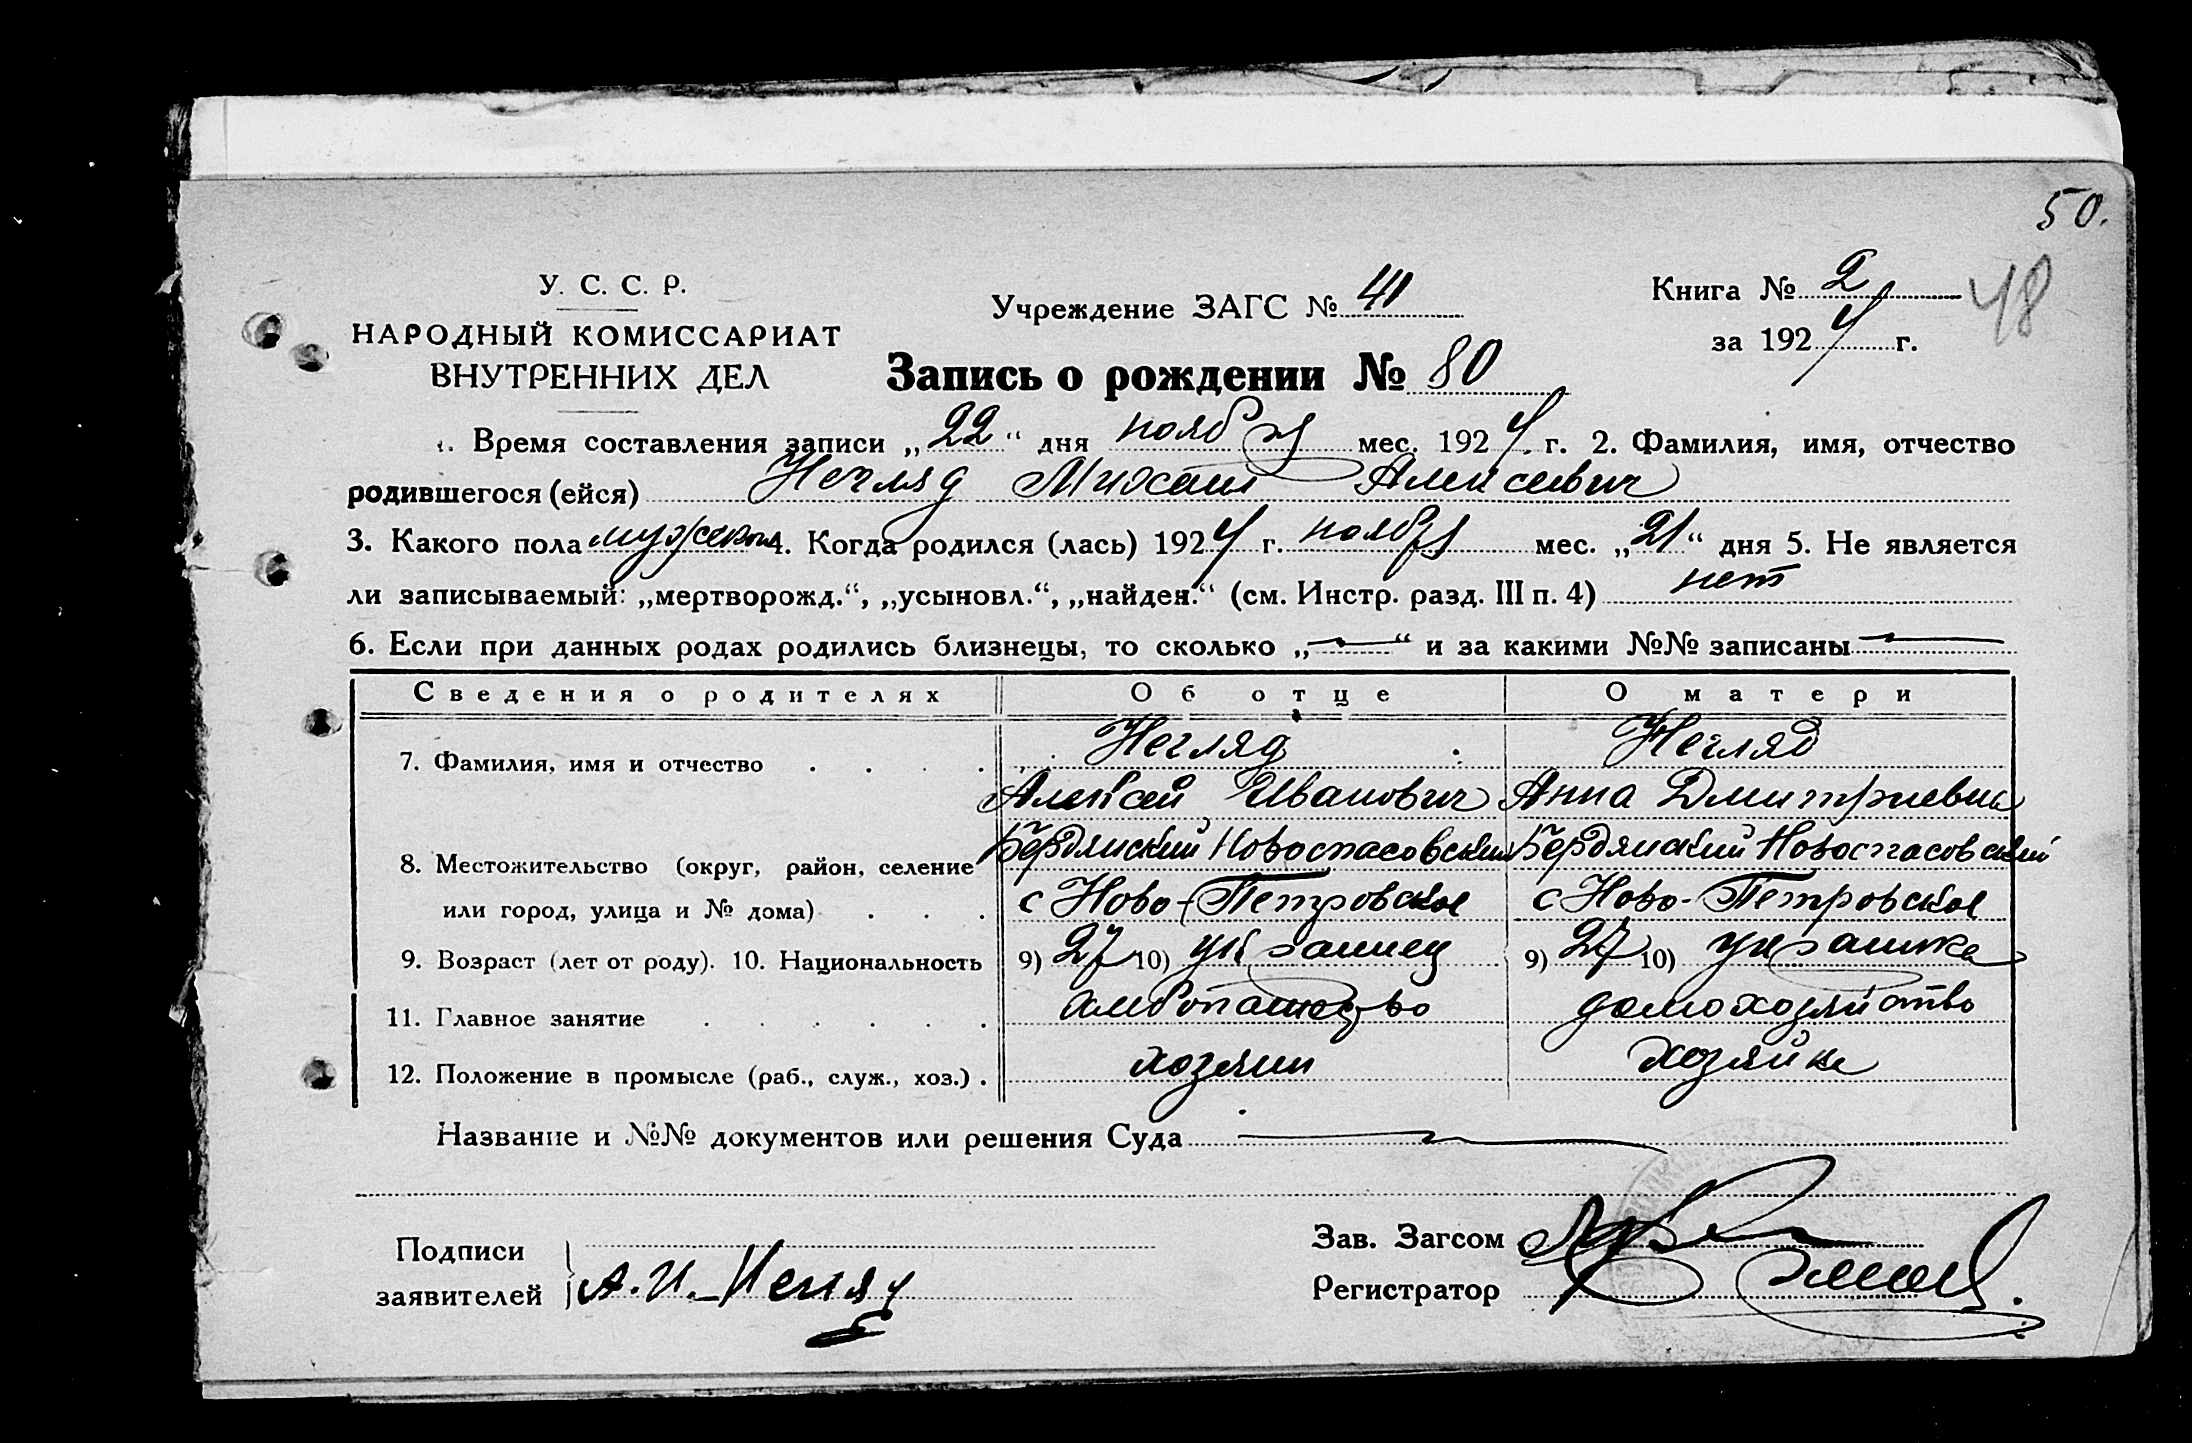 50.
48
У. С. С. Р.
НАРОДНЫЙ КОМИССАРИАТ
ВНУТРЕННИХ ДЕЛ
Учреждение ЗАГС № 41
Книга № 2
за 1924 г.
Запись о рождении № 80
1. Время составления записи „22“ дня ноября мес. 1924 г. 2. Фамилия, имя, отчество
родившегося (ейся) Негляд Михаил Алексеевич
3. Какого пола мужского 4. Когда родился (лась) 1924 г. ноября мес. „21“ дня 5. Не является
ли записываемый: „мертворожд.“, „усыновл.“, „найден.“ (см. Инстр. разд. III п. 4) нет
6. Если при данных родах родились близнецы, то сколько „—“ и за какими №№ записаны —
Сведения о родителях Об отце О матери
7. Фамилия, имя и отчество . . . . Негляд Негляд
Алексей Иванович Анна Дмитриевна
8. Местожительство (округ, район, селение Бердянский Новоспасовский Бердянский Новоспасовский
или город, улица и № дома) . . . с Ново-Петровское с Ново-Петровское
9. Возраст (лет от роду). 10. Национальность 9) 27 10) украинец 9) 27 10) украинка
11. Главное занятие . . . . . . хлебопашество домохозяйство
12. Положение в промысле (раб., служ., хоз.) . хозяин хозяйка
Название и №№ документов или решения Суда —
Подписи
заявителей А. И. Негляд
Зав. Загсом
Регистратор